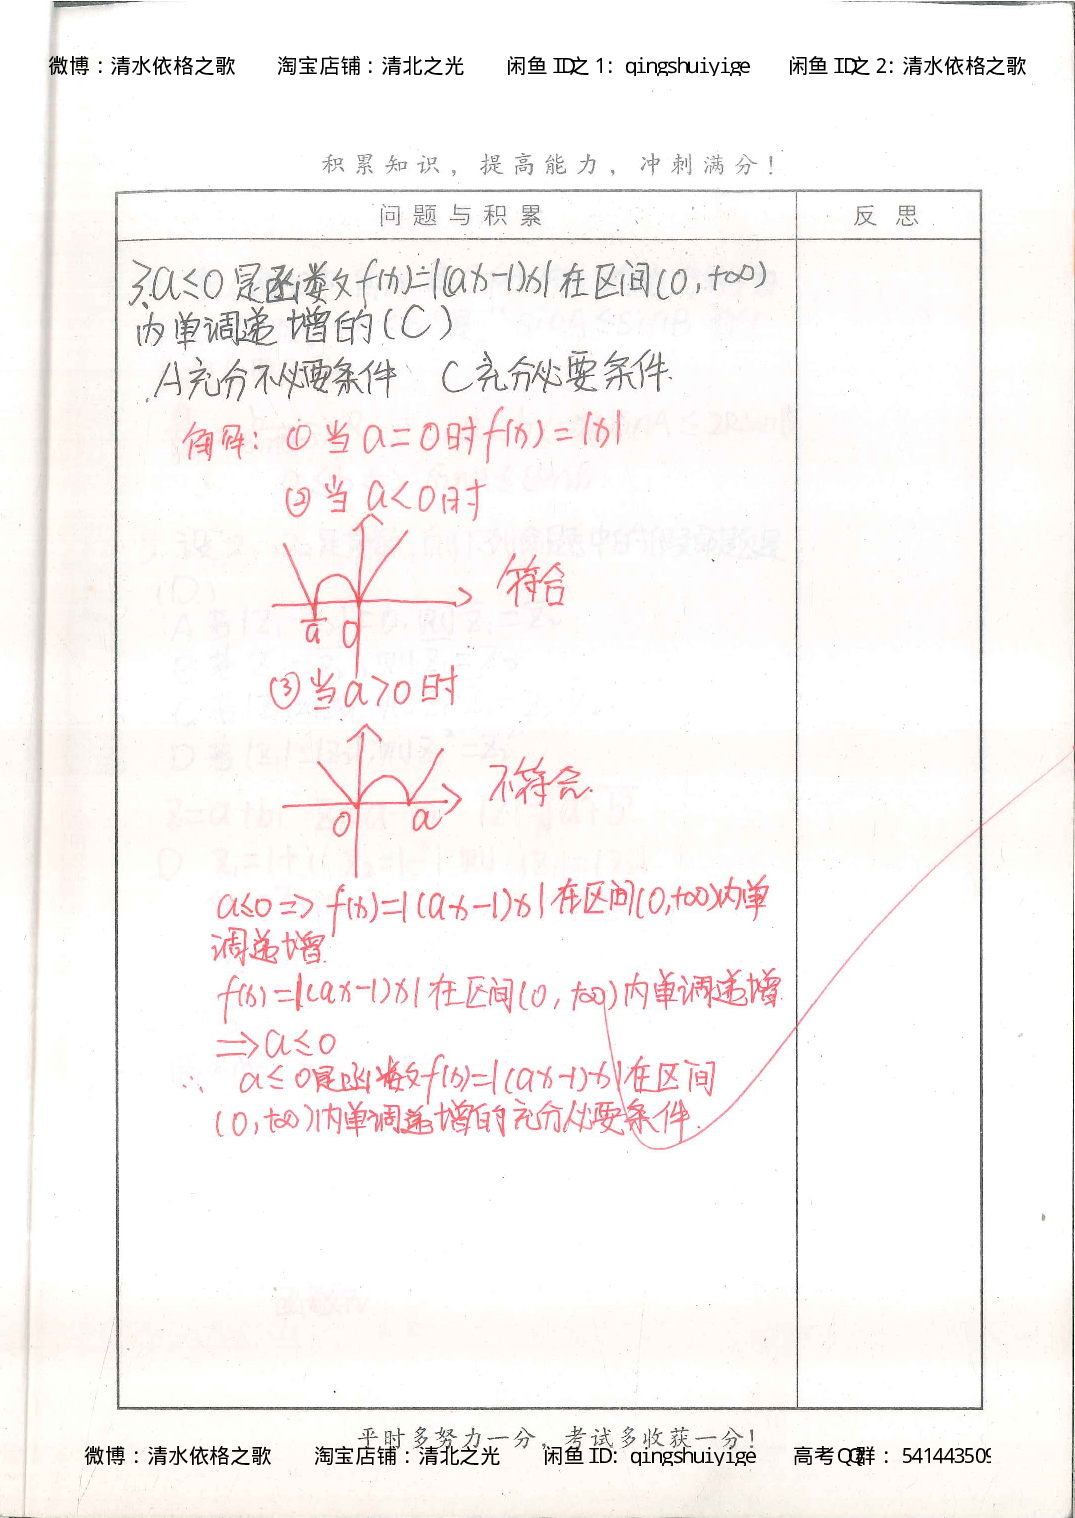 微博：清水依格之歌 淘宝店铺：清北之光 闲鱼 ID之 1: qingshuiyige 闲鱼 ID之 2: 清水依格之歌
积累知识，提高能力，冲刺满分！
问题与积累 反思
3.a≤0是函数f(x)=|(ax-1)x|在区间(0,+∞)
内单调递增的(C)
A充分不必要条件 C充分必要条件.
解: ①当a=0时f(x)=|x|
②当a<0时
符合
1/a 0
③当a>0时
不符合.
0 a
a≤0⇒f(x)=|(ax-1)x|在区间(0,+∞)内单
调递增
f(x)=|(ax-1)x|在区间(0,+∞)内单调递增
⇒a≤0
∴ a≤0是函数f(x)=|(ax-1)x|在区间
(0,+∞)内单调递增的充分必要条件.
平时多努力一分，考试多收获一分！
微博：清水依格之歌 淘宝店铺：清北之光 闲鱼 ID: qingshuiyige 高考QQ群：541443509